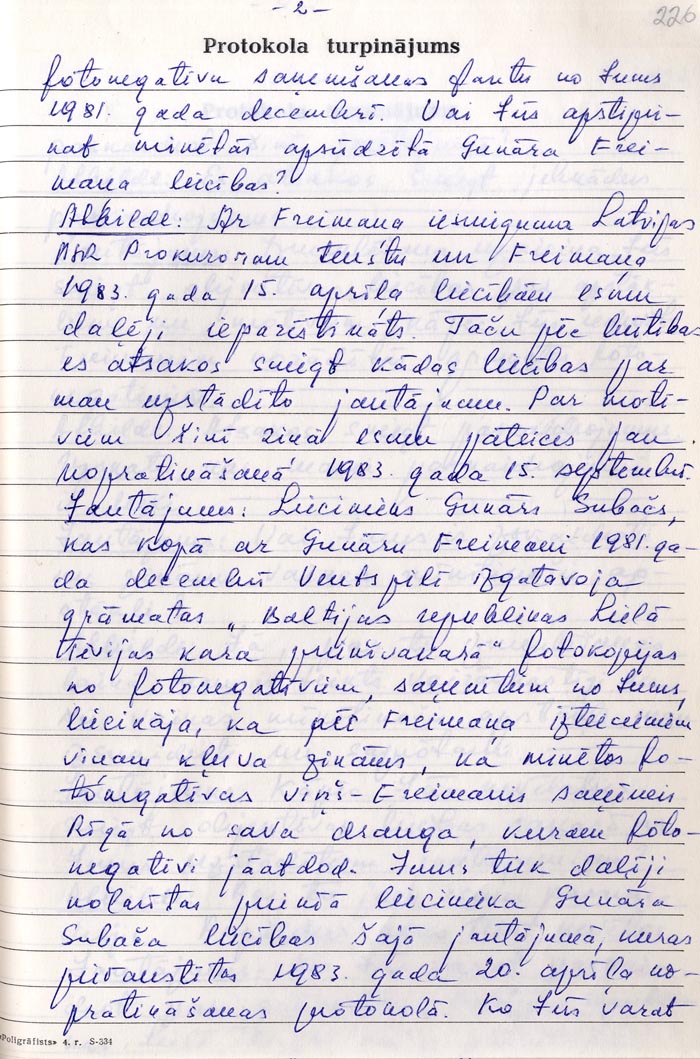 - 2 -
226
Protokola turpinājums
fotonegatīvu saņemšanas faktu no Jums
1981. gada decembrī. Vai Jūs apstipri-
nat minētās apsūdzētā Gunāra Frei-
maņa liecības?
Atbilde: Ar Freimaņa iesniegumu Latvijas
PSR Prokuroram tekstu un Freimaņa
1983. gada 15. aprīļa liecībām esmu
daļēji iepazīstināts. Taču pēc būtības
es atsakos sniegt kādas liecības par
man uzstādīto jautājumu. Par motī-
viem šinī ziņā esmu jāteicis jau
nopratināšanā 1983. gada 15. septembrī.
Jautājums: Liecinieks Gunārs Subačs,
kas kopā ar Gunāru Freimani 1981. ga-
da decembrī Ventspilī izgatavoja
grāmatas „Baltijas republikas Lielā
Tēvijas kara priekšvakarā" fotokopijas
no fotonegatīviem, saņemtiem no Jums,
liecināja, ka pēc Freimaņa izteicieniem
viņam kļuva zināms, ka minētos fo-
tonegatīvus viņš - Freimanis saņēmis
Rīgā no sava drauga, kuram foto-
negatīvi jāatdod. Jums tiek daļēji
nolasītas priekšā liecinieka Gunāra
Subača liecības šajā jautājumā, kuras
pierakstītas 1983. gada 20. aprīļa no-
pratināšanas protokolā. Ko Jūs varat
«Poligrāfists» 4. r. S-334